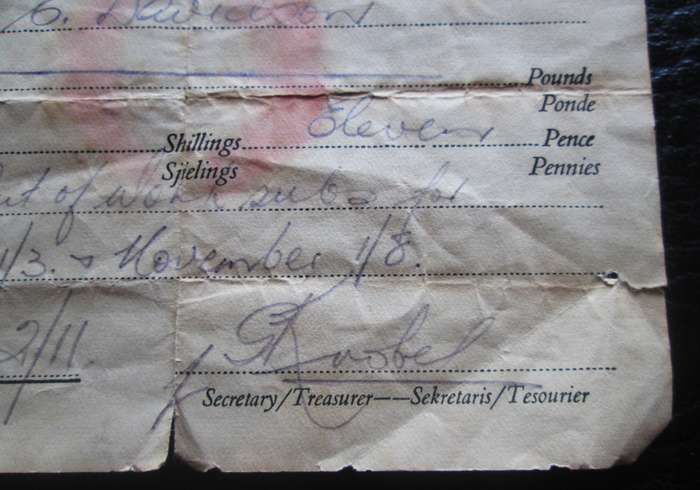 C. Davidson
Pounds
Ponde
Shillings Eleven Pence
Sjielings Pennies
out of work subs for
1/3. & November 1/8.
2/11.
Secretary/Treasurer——Sekretaris/Tesourier